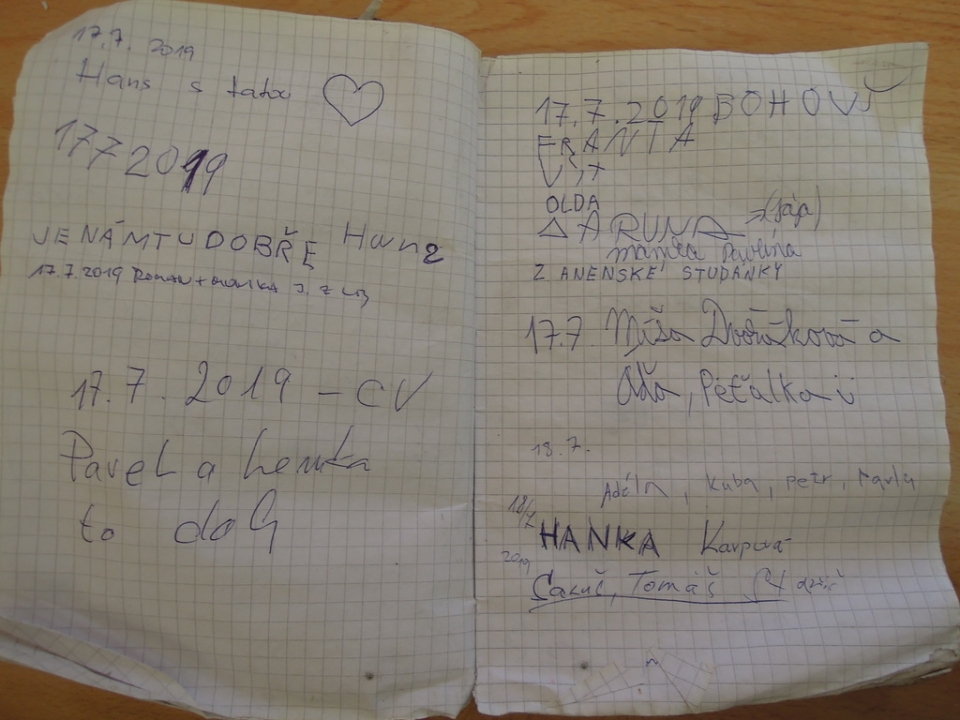 17.7. 2019
Hans s tatou
1772019
JE NÁM TU DOBŘE Hans
17.7.2019 ROMAN + MONIKA J. Z
17.7. 2019 - CV
Pavel a Lenka
to dali
17.7.2019 BOHOVÉ
FRANTA
VÍŤ
OLDA
DARUNA
mamka Pavlína
Z ANENSKÉ STUDÁNKY
17.7 Míša Dvořáková a
Áďa, Péťálka i
18.7.
Adéla, Kuba, Petr, Pavla
18/7
HANKA
2019
Tomáš